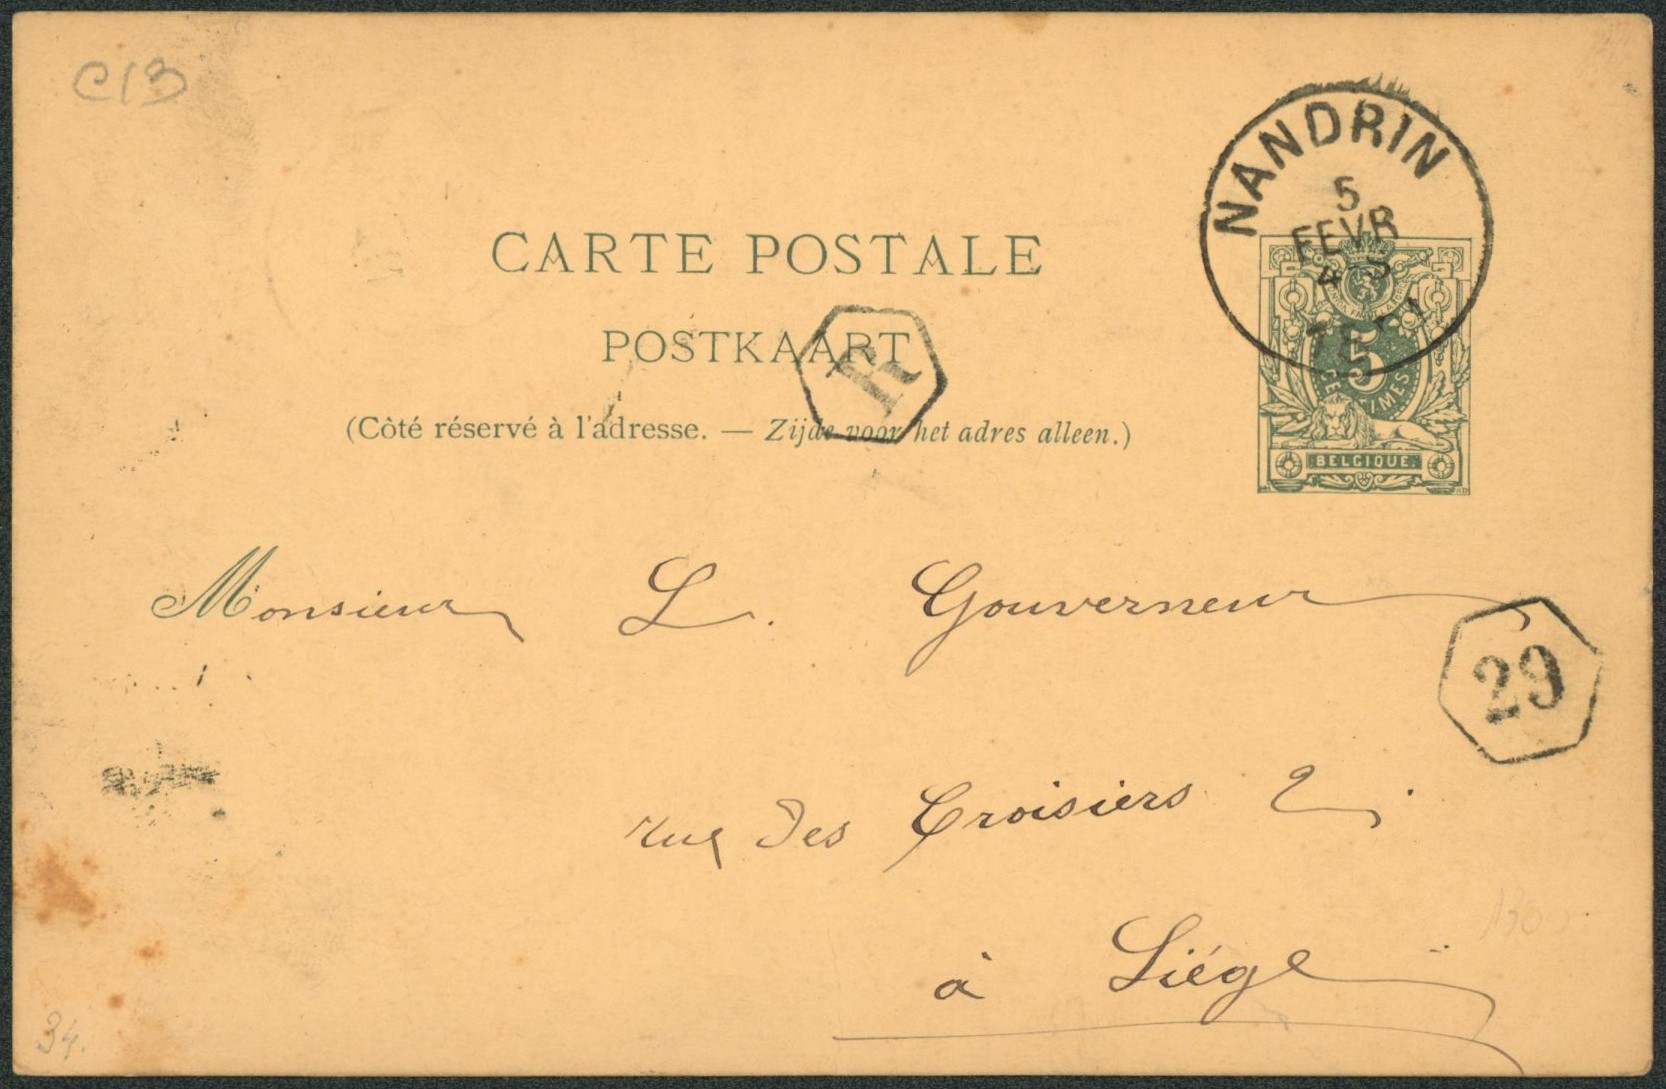 C13
NANDRIN
5
FEVR
4-S
CARTE POSTALE
POSTKAART
R
(Côté réservé à l'adresse. — Zijde voor het adres alleen.)
5
BELGIQUE.
Monsieur L. Gouverneur
29
rue des Croisiers 2.
à Liége
34.